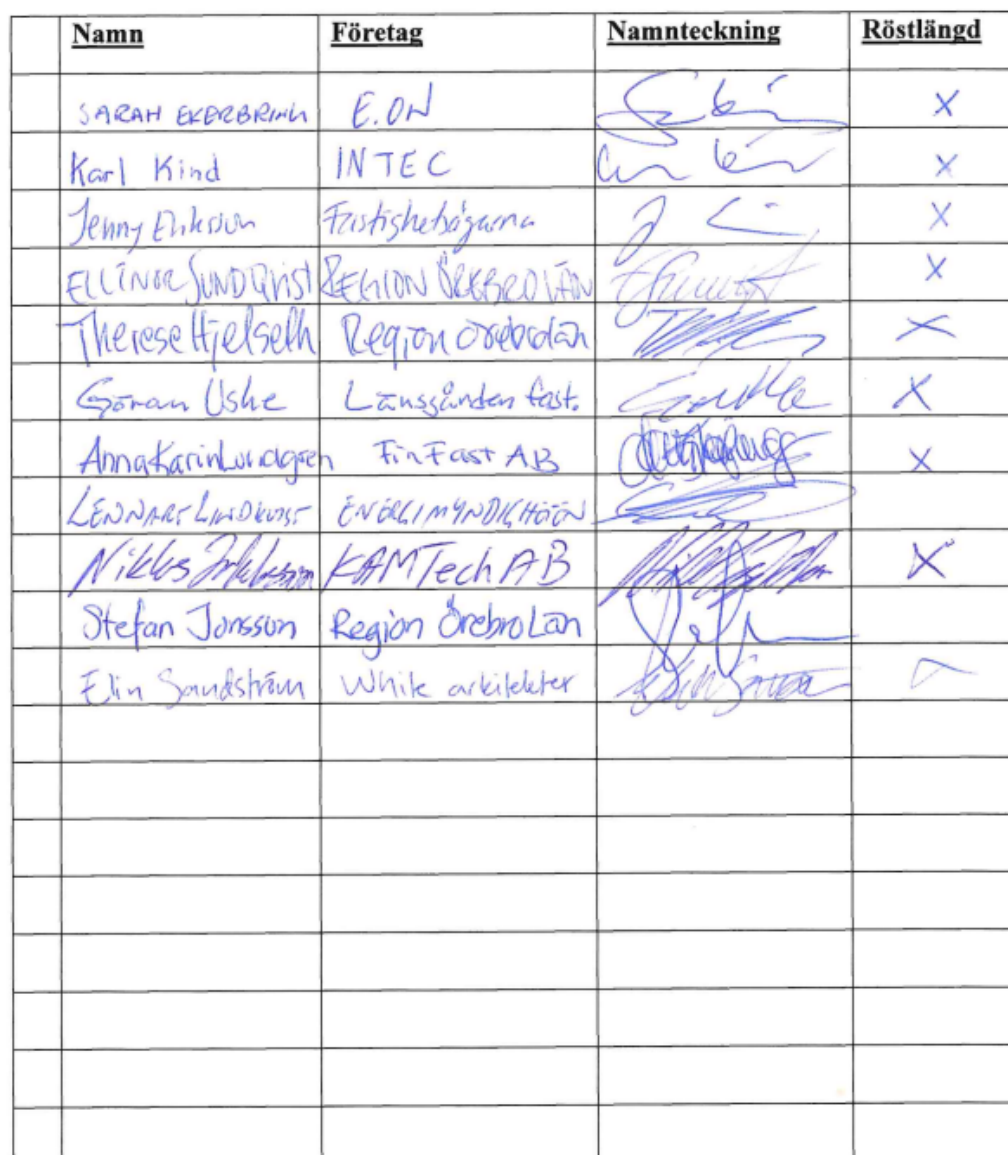 Namn Företag Namnteckning Röstlängd
SARAH EKERBRINK E.ON X
Karl Kind INTEC X
Jenny Eriksson Fastighetsägarna X
ELLINOR SUNDQVIST REGION ÖREBRO LÄN X
Therese Hjelseth Region Örebro län X
Göran Uske Länsgården fast. X
Anna Karin Lundgren FinFast AB X
LENNART LINDKVIST ENERGIMYNDIGHETEN
Niklas KAMTech AB X
Stefan Jonsson Region Örebro Län
Elin Sandström White arkitekter